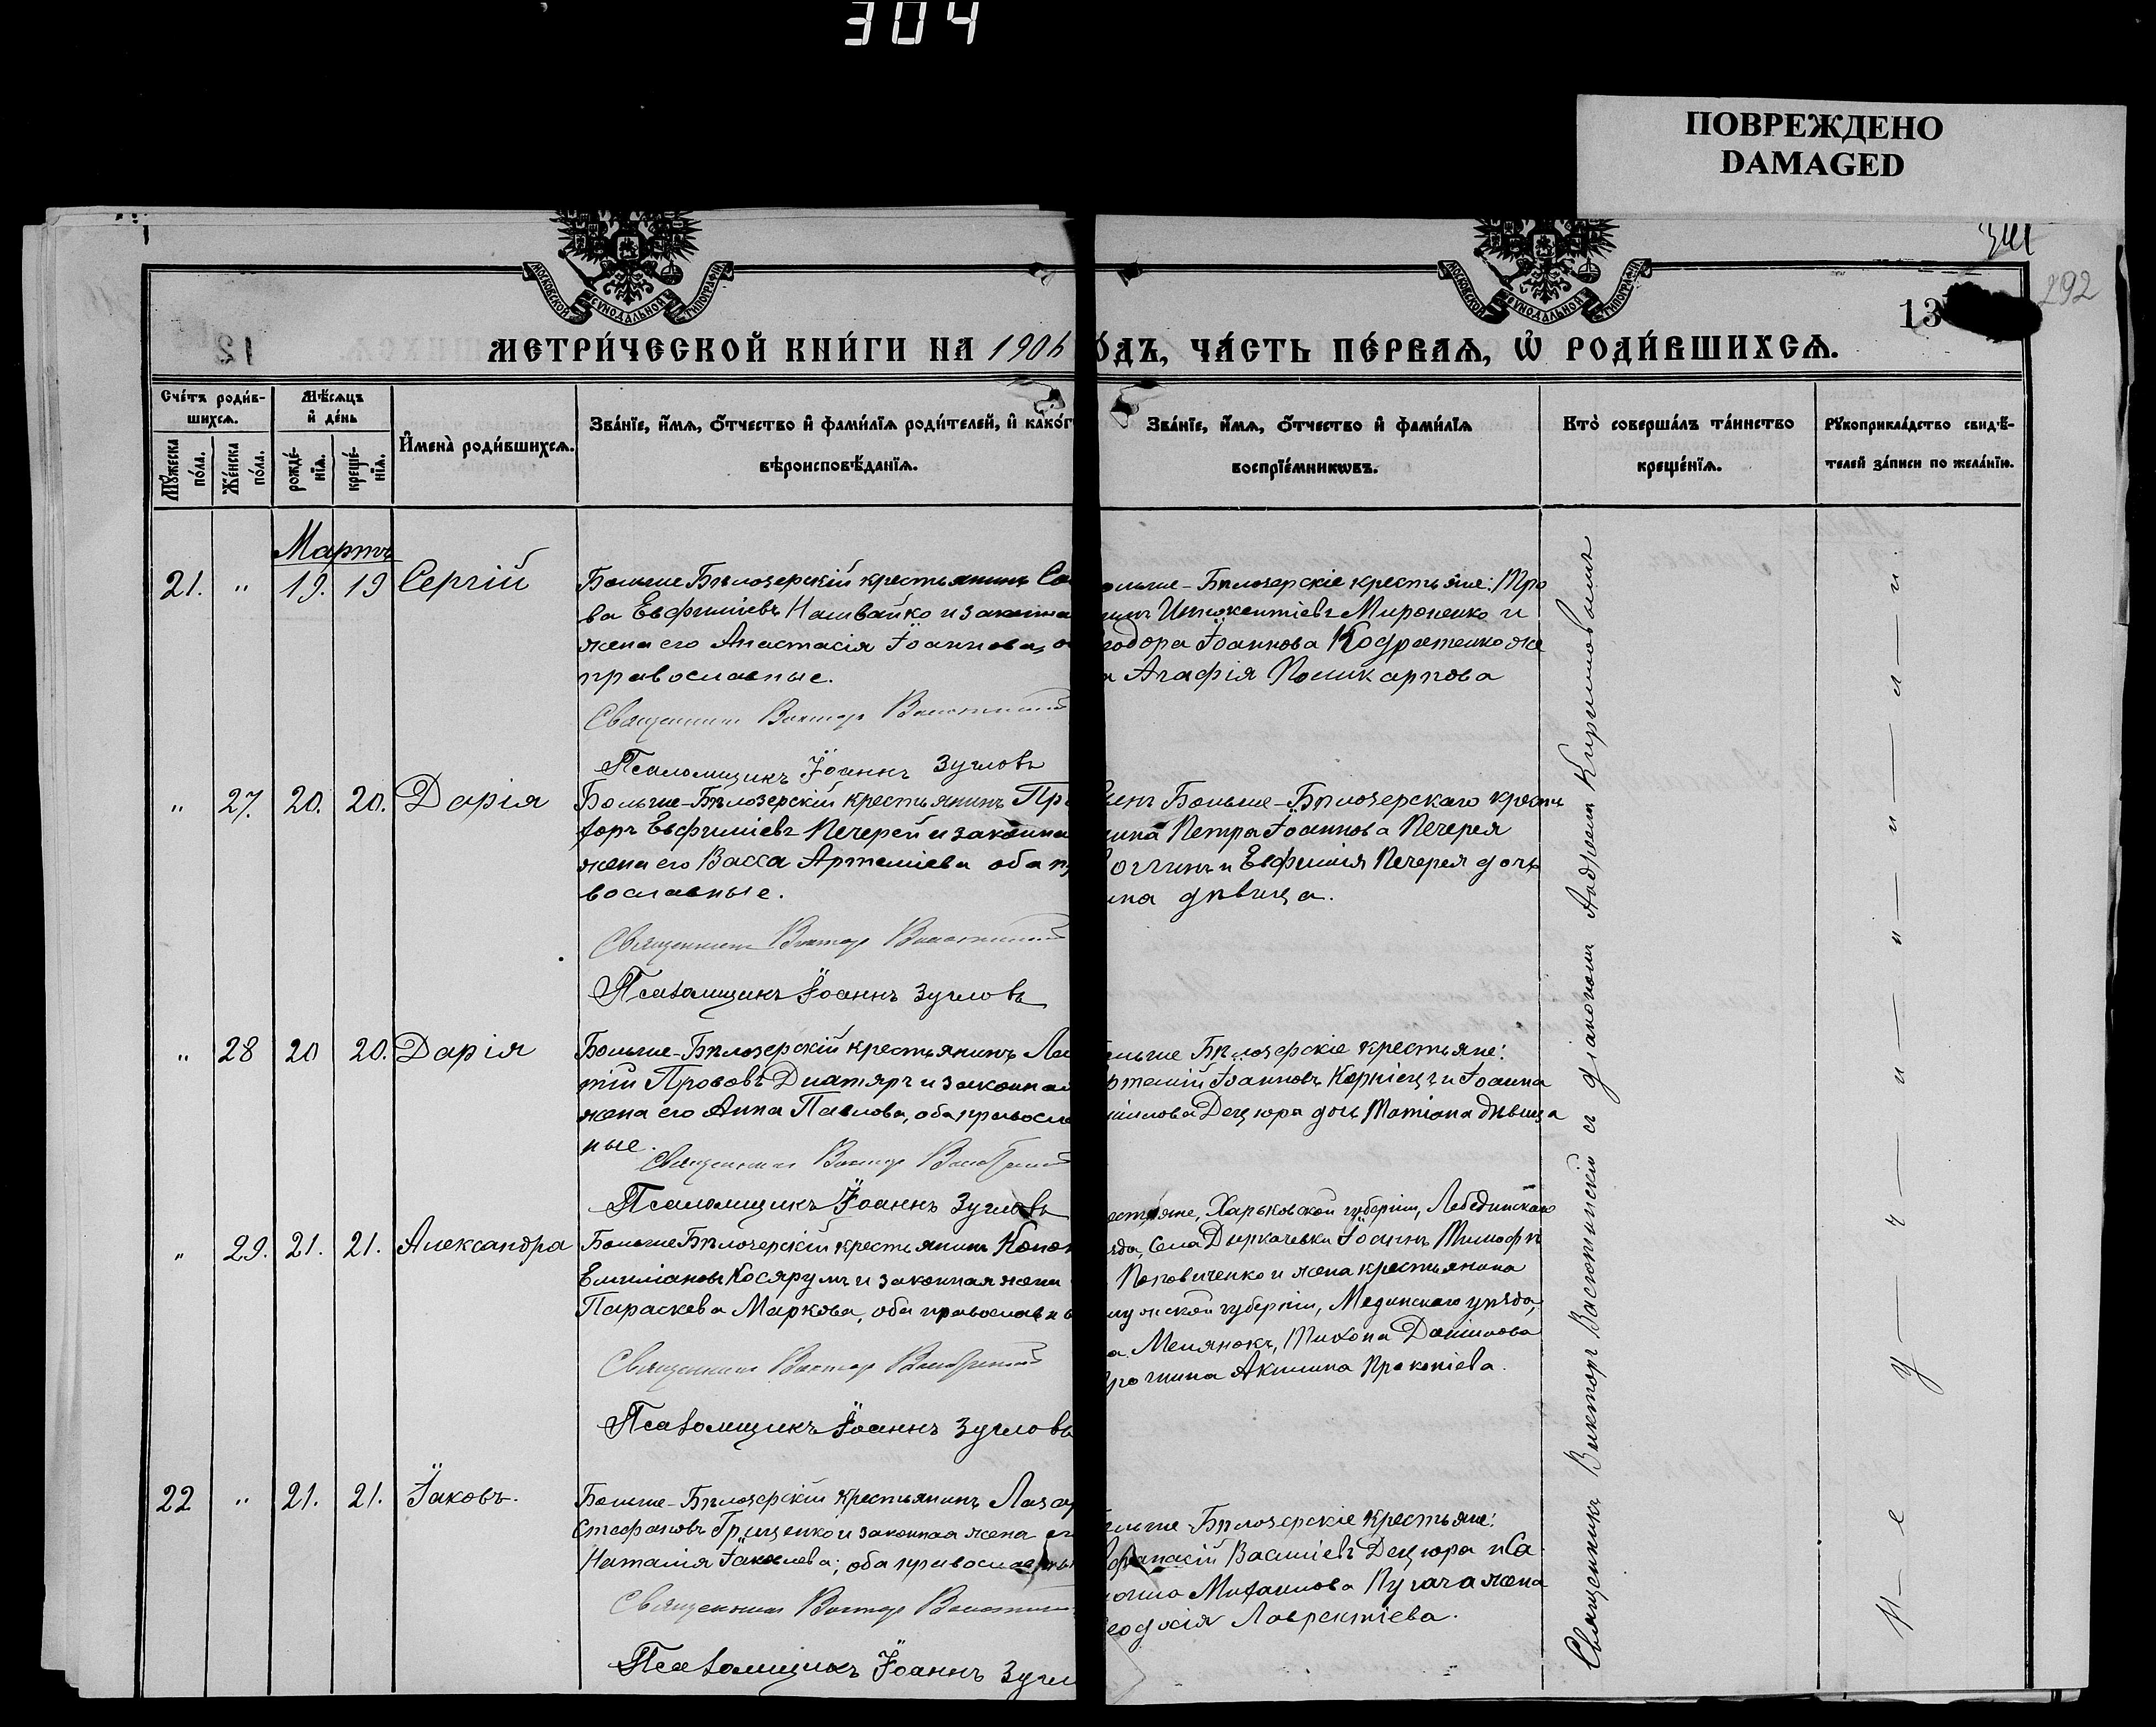 304
ПОВРЕЖДЕНО
DAMAGED
292
МОСКОВСКОЙ СѴНОДАЛЬНОЙ ТИПОГРАФІИ
МОСКОВСКОЙ СѴНОДАЛЬНОЙ ТИПОГРАФІИ
13
12
МЕТРИ́ЧЕСКОЙ КНИ́ГИ НА 1906
О́ДЪ, ЧА́СТЬ ПЕ́РВАѦ, Ѡ҆ РОДИ́ВШИХСѦ.
Сче́тъ роди́в-
шихсѧ.
Мѣ́сѧцъ
и҆ де́нь
Мꙋ́жеска по́ла.
Же́нска по́ла.
рожде́-нїѧ.
креще́-нїѧ.
И҆мена̀ роди́вшихсѧ.
Зва́нїе, и҆́мѧ, ѻ҆́тчество и҆ фами́лїѧ роди́телей, и҆ како́г
вѣроисповѣ́данїѧ.
Зва́нїе, и҆́мѧ, ѻ҆́тчество и҆ фами́лїѧ
воспрїе́мникѡвъ.
Кто̀ соверша́лъ та́инство
креще́нїѧ.
Рꙋкоприкла́дство свидѣ́-
телей за́писи по жела́нїю.
Мартъ
21. " 19. 19 Сергій
Больше Бѣлозерскій крестьянинъ Са
ва Евфиміевъ Наливайко и законна
жена его Анастасія Іоаннова, о
православные.
Священникъ Викторъ
Псаломщикъ Іоаннъ Зугловъ
ольше-Бѣлозерскіе крестьяне: Тро
Иннокентіевъ Мироненко и
одора Іоаннова Кодратенко же
а Агафія Поликарпова
" 27. 20. 20. Дарія
Больше-Бѣлозерскій крестьянинъ Пр
форъ Евфиміевъ Печерей и законна
жена его Васса Артеміева оба п
вославные.
Священникъ Викторъ
Псаломщикъ Іоаннъ Зугловъ
Больше-Бѣлозерскаго кресть
нина Петра Іоаннова Печерея
и Евфимія Печерея дочь
ина дѣвица.
" 28 20 20. Дарія
Больше-Бѣлозерскій крестьянинъ Ле
тій Прововъ Дитяръ и законная
жена его Анна Павлова, оба правосла
ные.
Священникъ Викторъ
Псаломщикъ Іоаннъ Зугловъ
ольше Бѣлозерскіе крестьяне:
ртемій Іоанновъ Корніецъ и Іоанна
Децюра дочь Татіана дѣвица
" 29. 21. 21. Александра
Больше Бѣлозерскій крестьянинъ Конон
Емиліановъ Косярумъ и законная жена
Параскева Маркова, оба православны
Священникъ Викторъ
Псаломщикъ Іоаннъ Зугловъ
естьяне, Харьковской губерніи, Лебединскаго
зда, села Диркачевки Іоаннъ Тимофѣ
Поповиченко и жена крестьянина
лужской губерніи, Медынскаго уѣзда,
а Меляновъ, Тихона Даніилова
Акилина Прокопіева.
22 " 21. 21. Іаковъ.
Больше-Бѣлозерскій крестьянинъ Лазар
Стефановъ Грищенко и законная жена ег
Наталія Іаковлева; оба православны
Священникъ Викторъ
Псаломщикъ Іоаннъ Зугл
ольше-Бѣлозерскіе крестьяне:
фанасій Василіевъ Децюра и Са
Михаилова Пугача жена
еодосія Лаврентіева.
Священникъ Викторъ Васютинскій съ діакономъ Андреемъ Кирилловымъ